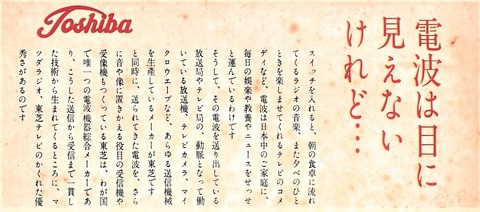 Toshiba
電波は目に
見えない
けれど…
スイッチを入れると、朝の食卓に流れ
てくるラジオの音楽、また夕べのひと
ときを楽しませてくれるテレビのコメ
ディなど、電波は日本中のご家庭に、
毎日の娯楽や教養やニュースをせっせ
と運んでいるわけです
そうして、その電波を送り出している
放送局やテレビ局の、動脈となって働
いている放送機、テレビカメラ、マイ
クロウエーブなど、あらゆる送信機械
を生産しているメーカーが東芝です
と同時に、送られてきた電波を、さら
に音や像に置きかえる役目の受信機や
受像機もつくっている東芝は、わが国
で唯一つの電波機器綜合メーカーであ
り、こうした送信から受信まで一貫し
た技術から生まれてくるところに、マ
ツダラジオ、東芝テレビのかくれた優
秀さがあるのです